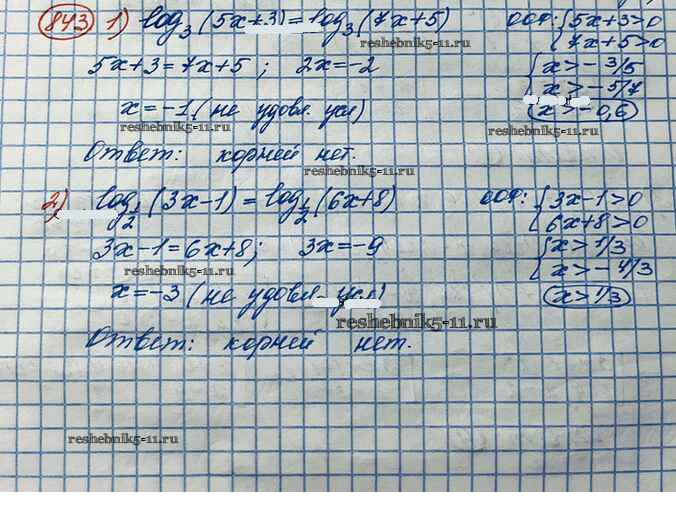 843 1) log₃(5x+3)=log₃(7x+5) ООФ: {5x+3>0
{7x+5>0
5x+3=7x+5; 2x=-2 {x>-3/5
{x>-5/7
x=-1 (не удовл. усл) x>-0,6
reshebnik5-11.ru
reshebnik5-11.ru
reshebnik5-11.ru
Ответ: корней нет.
reshebnik5-11.ru
2) log½(3x-1)=log½(6x+8) ООФ: {3x-1>0
{6x+8>0
3x-1=6x+8; 3x=-9 {x>1/3
{x>-4/3
reshebnik5-11.ru
reshebnik5-11.ru
x=-3 (не удовл. усл) x>1/3
reshebnik5-11.ru
Ответ: корней нет.
reshebnik5-11.ru